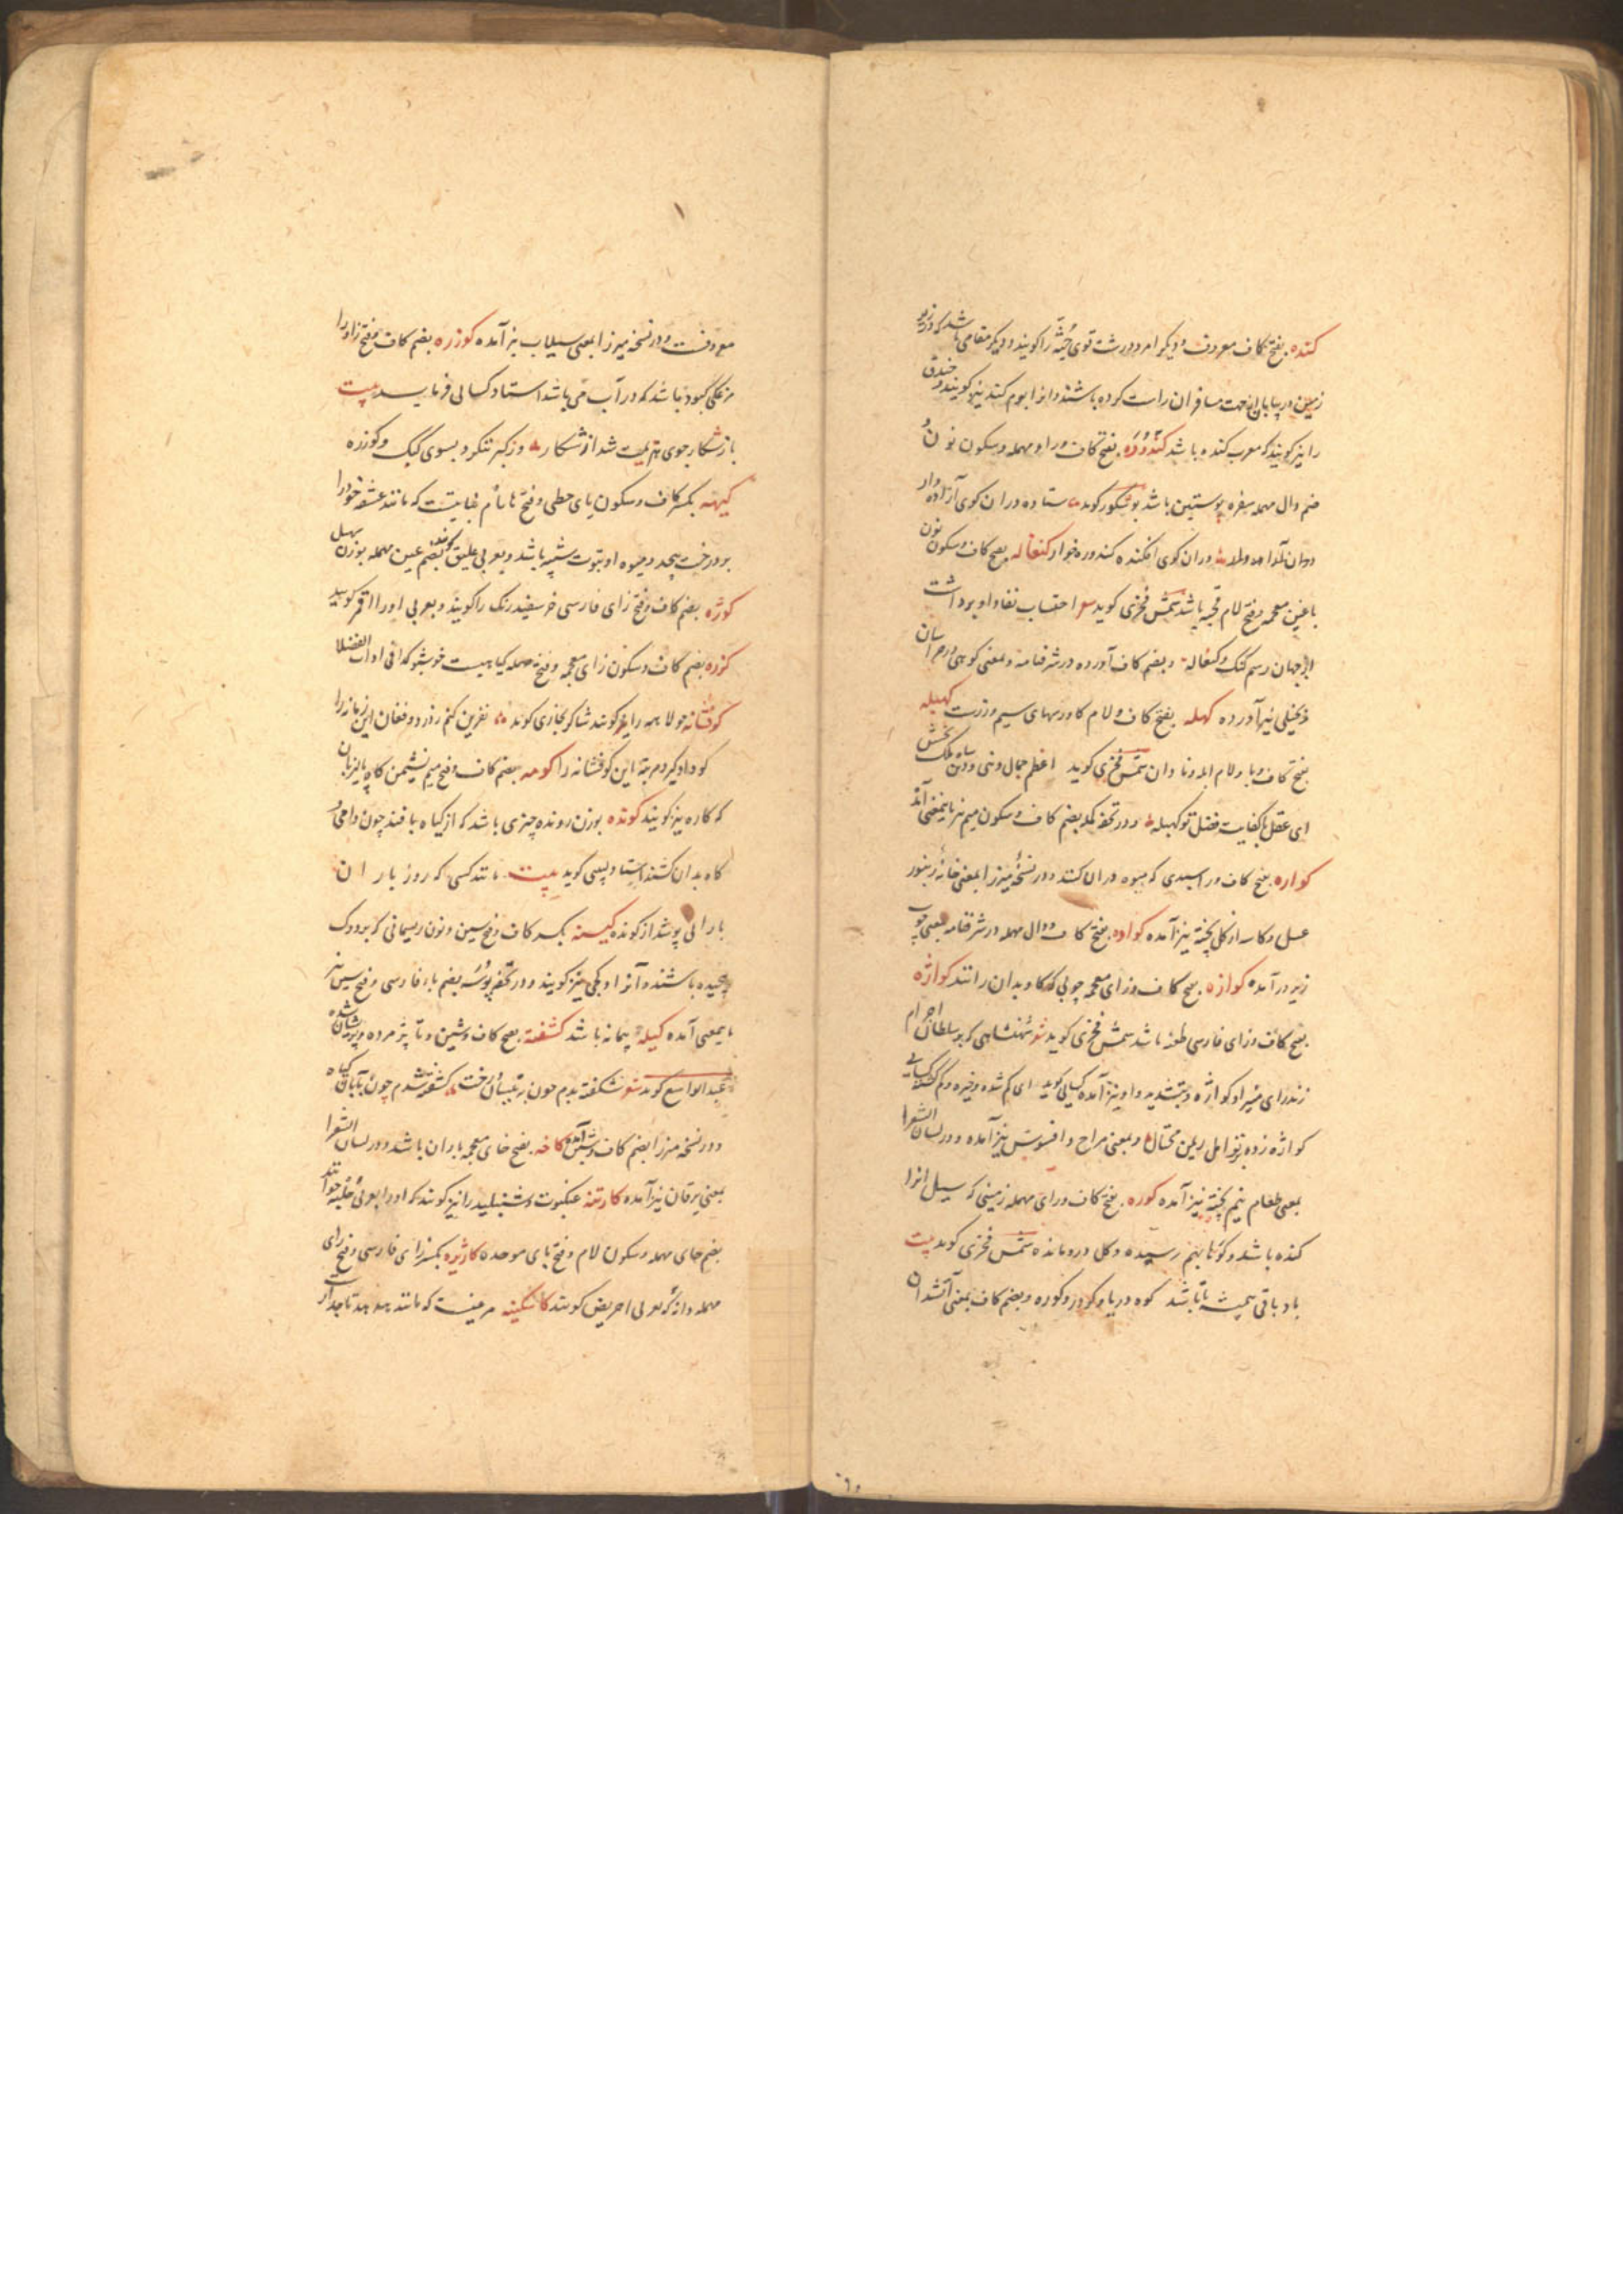 کنده بفتح کاف معروف و دیگر امرد درشت قوی جثه را کویند و دیکر مقامی باشد که در زیر
زمین در بیابان جهت مسافران راست کرده باشند و انرا بوم کند نیز کویند و خندق
را نیز کویند که معرب کنده باشد کندوره بفتح کاف و را و مهمله و سکون نون و
ضم دال مهمله سفره پوستین باشد بوشکور کوید ستاده در ان کوی آزاده وار
در ان کوی افکنده کندوره خوار کنغاله بفتح کاف و سکون نون
با غین معجمه و فتح لام قحبه باشد شمس فخری کوید احتساب نفاذ او برداشت
از جهان رسم کنک و کنغاله و بضم کاف آورده در شرفنامه و بمعنی کوهی در خراسان
و بخیلی نیز آورده کهله بفتح کاف و لام کاورسهای سیم و زرست کهبله
بفتح کاف و با و لام ابله و نادان شمس فخری کوید اعظم جمال دنیی و دین شاه ملک بخش
ای عقل با کفایت فضل تو کهبله و در تحفه کمله بضم کاف و سکون میم نیز باینمعنی آمد
کواره بفتح کاف و را سبدی که میوه در ان کنند و در نسخهٔ میرزا بمعنی خانهٔ زنبور
عسل و کاسه از کل پخته نیز آمده کواده بفتح کاف و دال مهمله در شرفنامه بمعنی چوب
زیر در آمده کوازه بفتح کاف و زای معجمه چوبی که کاو بدان رانند کواژه
بفتح کاف و زای فارسی طعنه باشد شمس فخری کوید شهنشاهی که بر سلطان اجرام
زند رای منیر او کواژه و بتشدید واو نیز آمده کسایی کوید ای کم شده و خیره و سرکشته کسایی
کواژه زده بر تو امل ریمن محتال و بمعنی مزاح و افسوس نیز آمده و در لسان الشعرا
بمعنی طعام نیم پخته نیز آمده کوره بفتح کاف و رای مهمله زمینی که سیل انرا
کنده باشد و کوها بهم رسیده و کل در و مانده شمس فخری کوید بیت
باد باقی همیشه تا باشد کوه و دریا و کردر و کوره و بضم کاف بمعنی آتشدان
معروفست و در نسخه میرزا بمعنی سیلاب نیز آمده کوزره بضم کاف و فتح زا و را
مرغکی کبود باشد که در آب می باشد استاد کسایی فرماید بیت
باز شکار جوی هزیمت شد از شکار وز کبر ننکرد بسوی کبک و کوزره
کیهنه بکسر کاف و سکون یای حطی و فتح ها نام نباتیست که مانند عشقه خود را
بر درخت پیچد و میوه او بتوت شبیه باشد و بعربی علیق کویند بضم عین مهمله بوزن
کوژه بضم کاف و فتح زای فارسی خر سفید رنک را کویند و بعربی اورا اقمر کویند
کزده بضم کاف و سکون زای معجمه و فتح مهمله کیاهیست خوشبو کذا فی اداب الفضلا
کوفشانه جولاهه را نیز کویند شاکر بخاری کوید نفرین کنم ز درد و فغان این زمانه را
کو داد کبر و مرتبه این کوفشانه را کومه بضم کاف و فتح میم نشیمن کاه پالیزبان
که کازه نیز کویند کونده بوزن رونده چیزی باشد که از کیاه بافند چون دامی و
کاه بدان کشند استاد لبیبی کوید بیت مانند کسی که روز باران
بارانی پوشد از کونده کیسنه بکسر کاف و فتح سین و نون ریسمانی که بر دوک
پیچیده باشند و آنرا دوکچی نیز کویند و در تحفه پوسه بضم باء فارسی و فتح سین نیز
باینمعنی آمده کیله پیمانه باشد کشفته بفتح کاف و شین و تا پژمرده و پریشان شده
عبدالواسع کوید شکفته بدم چون بنیسان درخت کشفته شدم چون بآبان کیاه
و در نسخه میرزا بضم کاف و شین آمده کاخه بفتح خای معجمه باران باشد و در لسان الشعرا
بمعنی یرقان نیز آمده کارتنه عنکبوت و شنبلید را نیز کویند که اورا بعربی حلبه خوانند
بضم حای مهمله و سکون لام و فتح بای موحده کاژیره بکسر زای فارسی و فتح رای
مهمله دانه که بعربی احریض کویند کاسکینه مرغیست که مانند هدهد تاجدار